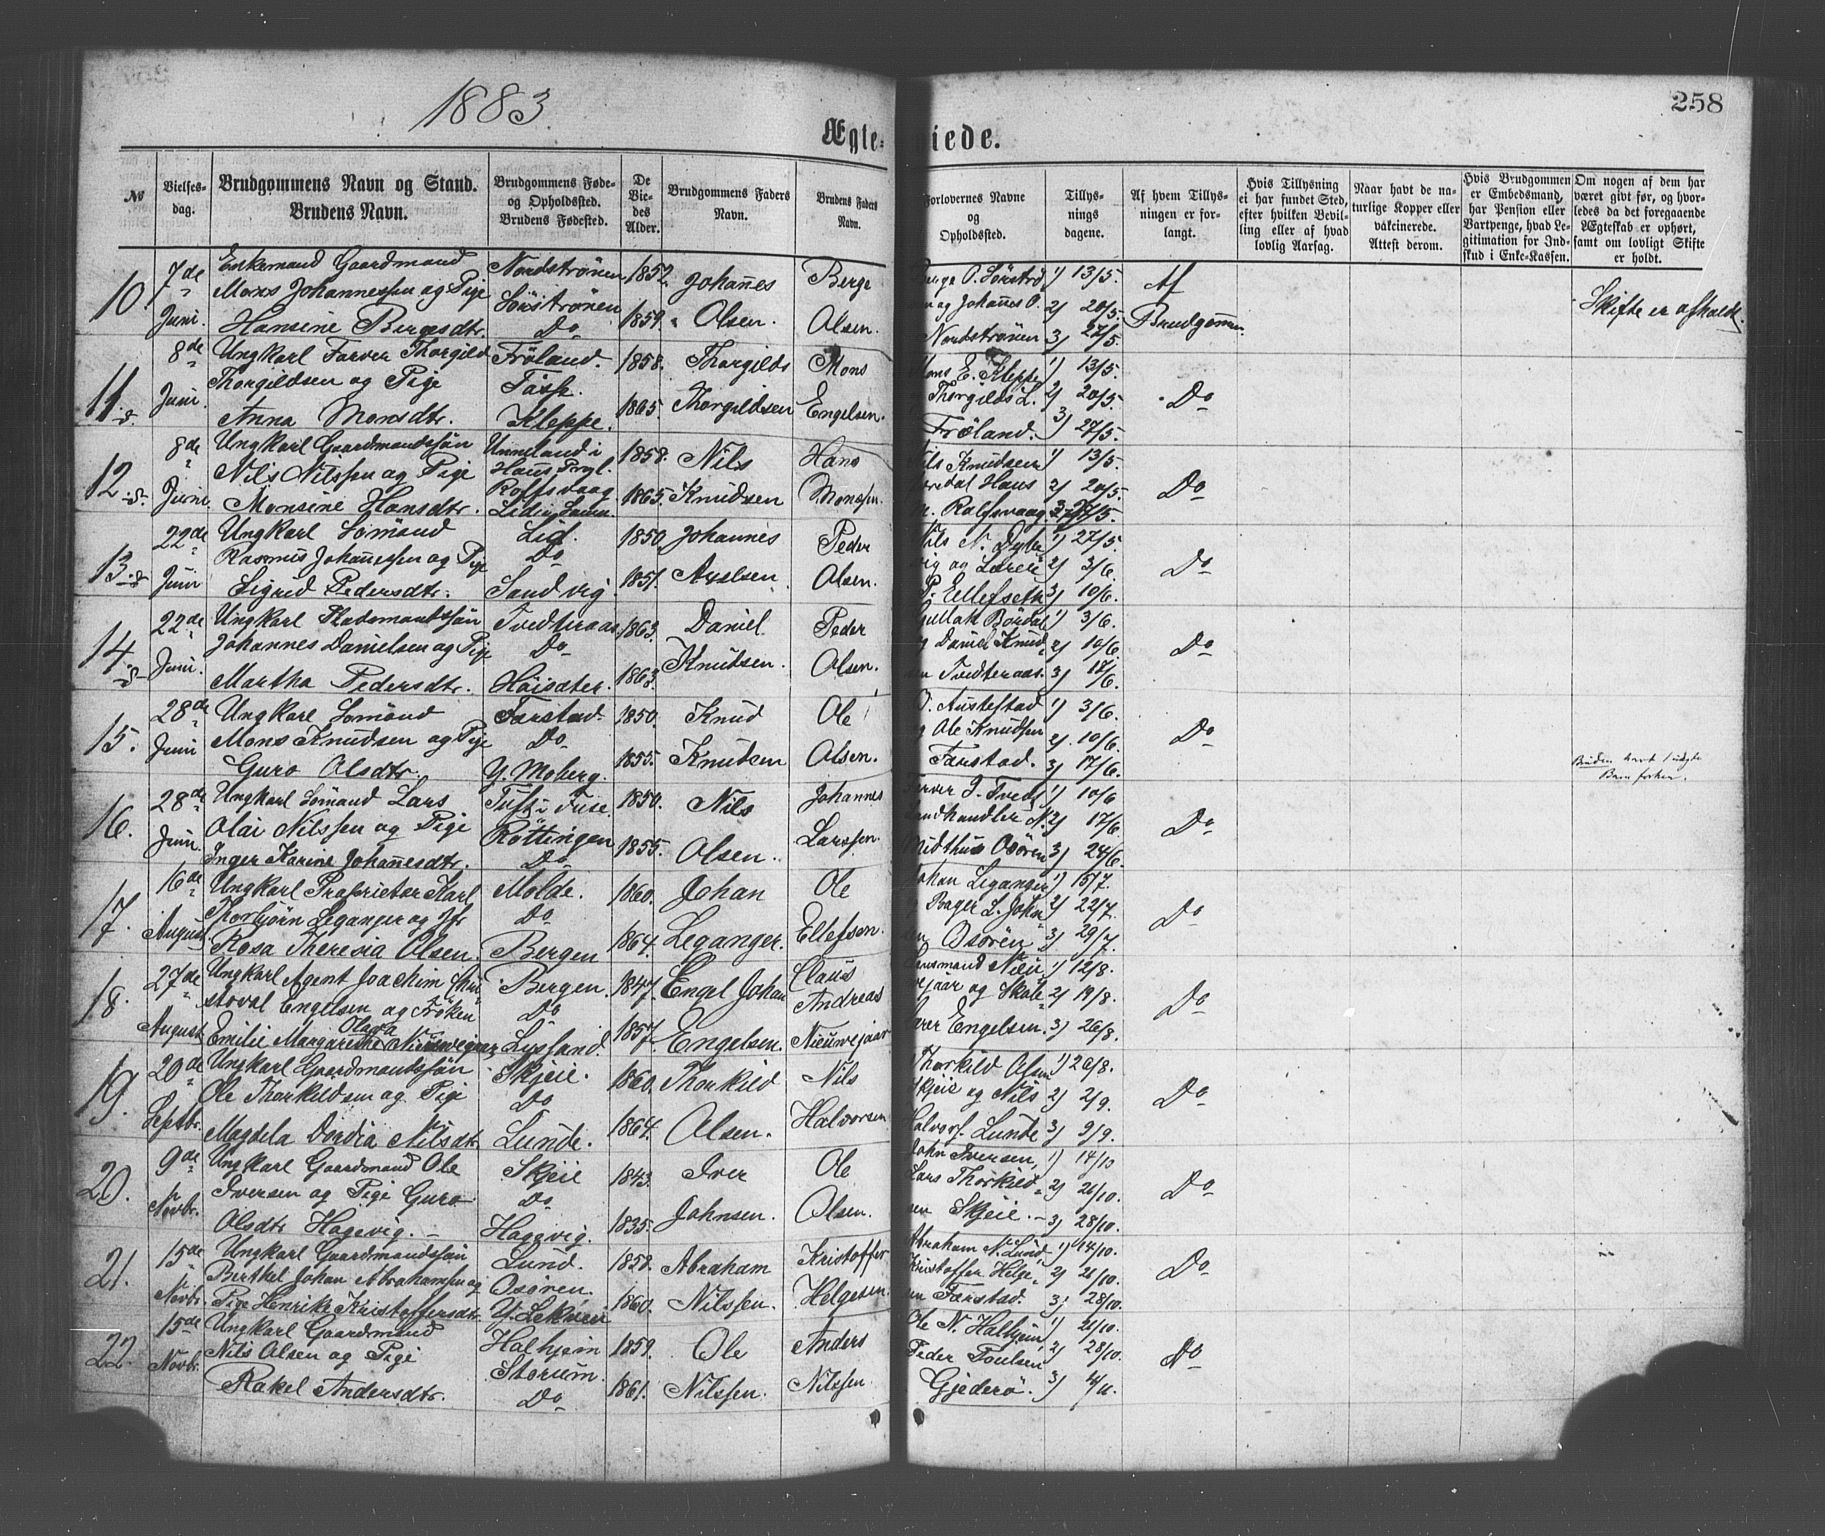 1883
258
Ægte= iede.
№
Vielses-dag.
Brudgommens Navn og Stand. Brudens Navn.
Brudgommens Føde- og Opholdssted. Brudens Fødested.
De Vie-des Alder.
Brudgommens Faders Navn.
Brudens Faders Navn.
Forlovernes Navne og Opholdssted.
Tillys-nings dagene.
Af hvem Tillys-ningen er for-langt.
Hvis Tillysning ei har fundet Sted, efter hvilken Bevil-ling eller af hvad lovlig Aarsag.
Naar havt de na-turlige Kopper eller vakcinerede. Attest derom.
Hvis Brudgommen er Embedsmand, har Pension eller Vartpenge, hvad Le-gitimation for Ind-skud i Enke-Kassen.
Om nogen af dem har været givt før, og hvor-ledes da det foregaaende Ægteskab er ophørt, samt om lovligt Skifte er holdt.
7de Enkemand Gaardmand Nordströnen 1852. Johannes Berge O. Sörströ 1) 13/5. Af
10 Mons Johannessen og Pige Sörströnen og Johannes O. 2) 20/5. Brudgommen Skifte er afholdt.
Juni. Hansine Bergesdtr. Do 1859. Olsen. Olsen. Nordströnen 3) 27/5.
8de Ungkarl Farver Thorgild Fröland. 1858. Thorgilds Mons Mons E. Kleppe 1) 13/5.
11. Juni. Thorgildsen og Pige Tösse. Thorgilds L. 2) 20/5. Do
Anna Monsdtr. Kleppe. 1865. Thorgildsen Engelsen. Fröland. 3) 27/5.
8de Ungkarl Gaardmandssön Unneland i 1858. Nils Hans Nils Knudsen 1) 13/5.
12 Nils Nilssen og Pige Haus Prgl. Hans 2) 20/5. Do
Juni Monsine Hansdtr. Rolfsvaag 1865. Knudsen Monssen. Rolfsvaag 3) 27/5.
22de Ungkarl Sömand Lid. 1850. Johannes Peder Nils N. 1) 27/5.
13 Rasmus Johannessen og Pige Do 2) 3/6. Do
Juni Sigrid Pedersdtr. Sandvig 1851. Axelsen Olsen. P. Ellefseth 3) 10/6.
22de Ungkarl Pladsmandssön Tvedteraas. 1863. Daniel Peder Gullak Bördal 1) 3/6.
14 Johannes Danielsen og Pige Do og Daniel Knud 2) 10/6 Do
Juni. Martha Pedersdtr. Höisæter. 1863. Knudsen. Olsen. Tvedteraas. 3) 17/6.
28de Ungkarl Sömand Farstad. 1850. Knud Ole O. Austestad 1) 3/6.
15. Juni Mons Knudsen og Pige Do og Ole Knudsen 2) 10/6. Do
Guro Olsdtr. Y. Moberg. 1855. Knudsen Olsen. Farstad. 3) 17/6. Bruden havt 1 uægte
Barn forhen.
28de Ungkarl Sömand Lars Tuft i Fuse. 1850. Nils Johannes Farver J. Tvedt 1) 10/6
16. Olai Nilssen og Pige Röttingen Landhandler N. 2) 17/6. Do
Juni. Inger Karine Johannesdtr. Do 1855. Olsen. Larssen. Midthus Osören 3) 24/6.
16de Ungkarl Proprietær Karl Molde. 1860. Johan Ole Johan Leganger 1) 15/7.
17. Thorbjörn Leganger og Jfr Do Bager L. John 2) 22/7. Do
August Rosa Theresia Olsen. Bergen 1864. Leganger. Ellefsen. Osören 3) 29/7.
27de Ungkarl Agent Joachim Bergen. 1847. Engel Johan Claus 1) 12/8.
18. stoval Engelsen og Fröken Do Andreas og Skole 2) 19/8. Do
August Emilie Margarethe Olava Nieuwejaar Lysland. 1857. Engelsen. Nieuwejaar Engelsen. 3) 26/8.
20de Ungkarl Gaardmandssön Skjeie. 1860. Thorkild Nils Thorkild Olsen 1) 26/8.
19. Ole Thorkildsen og Pige Do Skjeie og Nils 2) 2/9. Do
Septbr. Magdela Dordia Nilsdtr. Lunde. 1864. Olsen. Halvorsen Halvors. Lunde 3) 9/9.
9de Ungkarl Gaardmand Ole Skjeie 1843. Iver Ole John Iversen, 1) 14/10
20. Iversen og Pige Guro Do Lars Thorkild 2) 21/10. Do
Novbr. Olsdtr Hagevig. Hagevig. 1835. Johnsen. Olsen. Skjeie. 3) 28/10.
15de Ungkarl Gaardmandssön Lund. 1858. Abraham Kristoffer Abraham N. Lund 1) 14/10.
21. Berthel Johan Abrahamsen og Osören. Kristoffer Helge 2) 21/10. Do
Novbr. Pige Henrike Kristoffersdtr. Y. Lekven 1860. Nilssen. Helgesen. Farstad. 3) 28/10.
15de Ungkarl Gaardmand Halhjem 1859. Ole Anders Ole N. Halhjem 1) 21/10.
22. Novbr. Nils Olsen og Pige Storum. Peder Poulsen 2) 28/10. Do
Rakel Andersdtr. Do 1861. Nilssen. Nilssen. Gjederö. 3) 4/11.